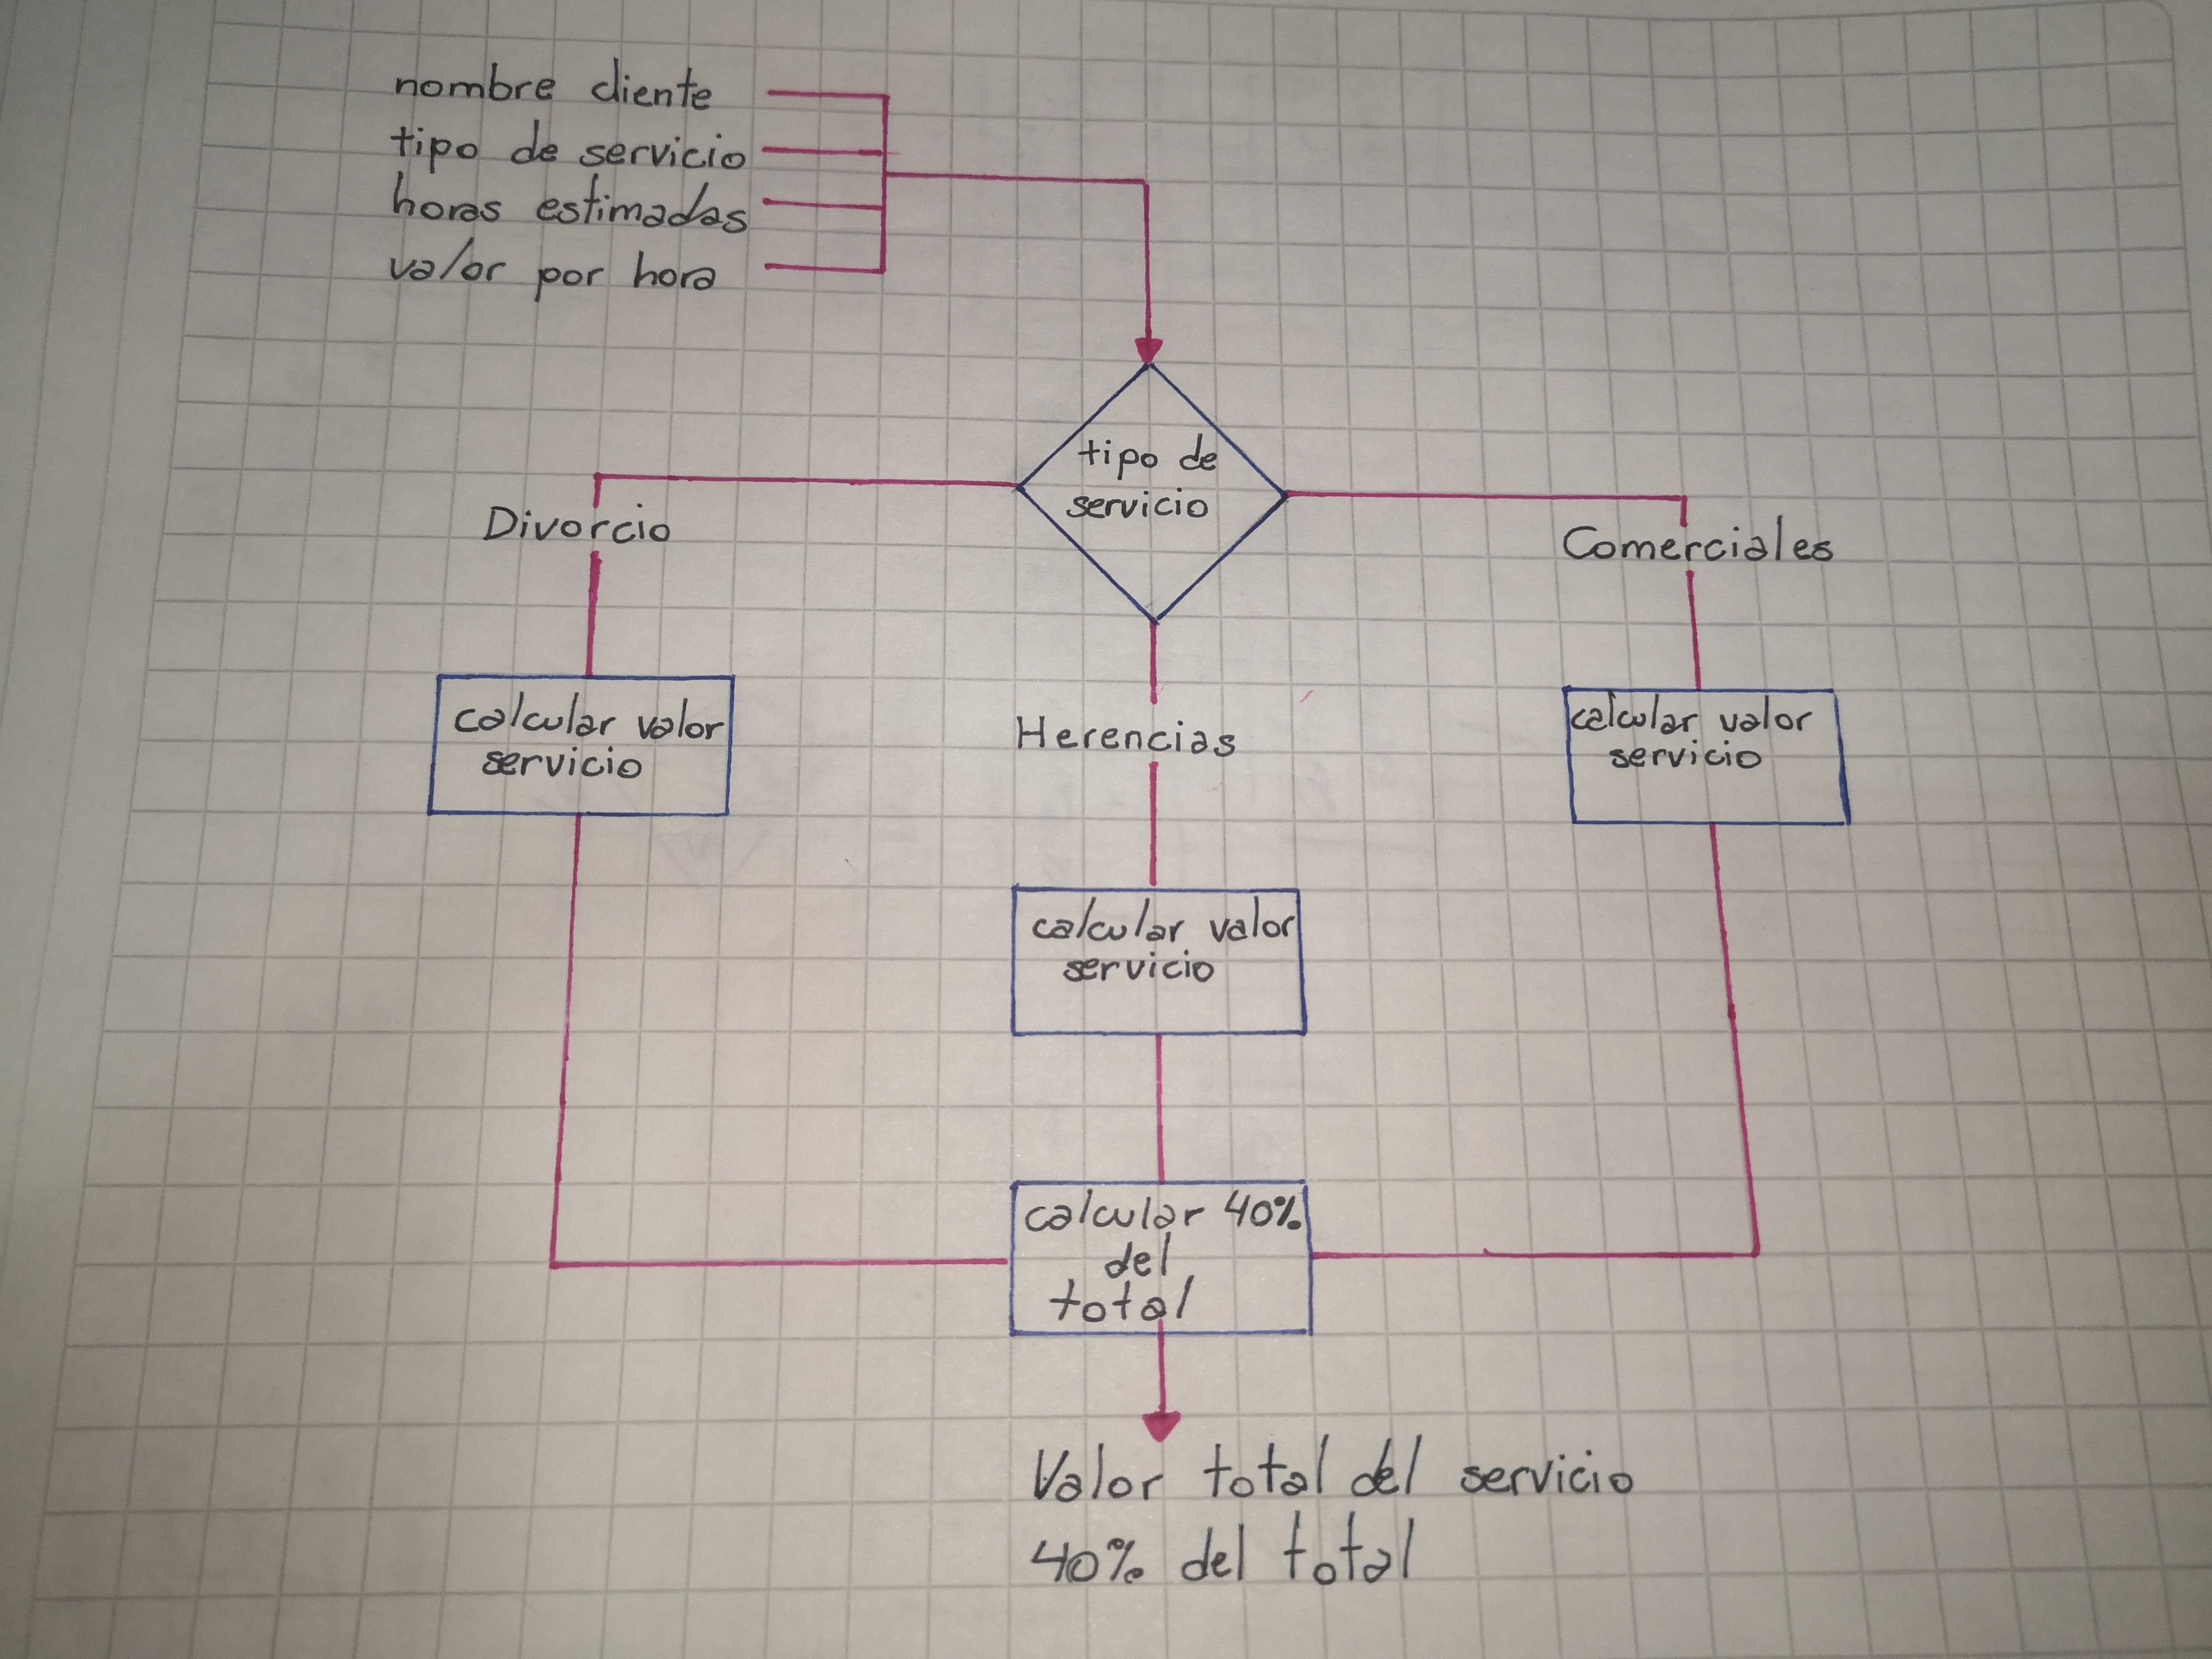 nombre cliente
tipo de servicio
horas estimadas
valor por hora
tipo de
servicio
Divorcio
Comerciales
calcular valor
servicio
Herencias
calcular valor
servicio
calcular valor
servicio
calcular 40%
del
total
Valor total del servicio
40% del total